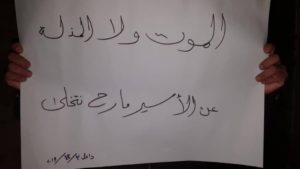 الموت ولا المذلة
عن الأسير مارح نتخلى
داعل